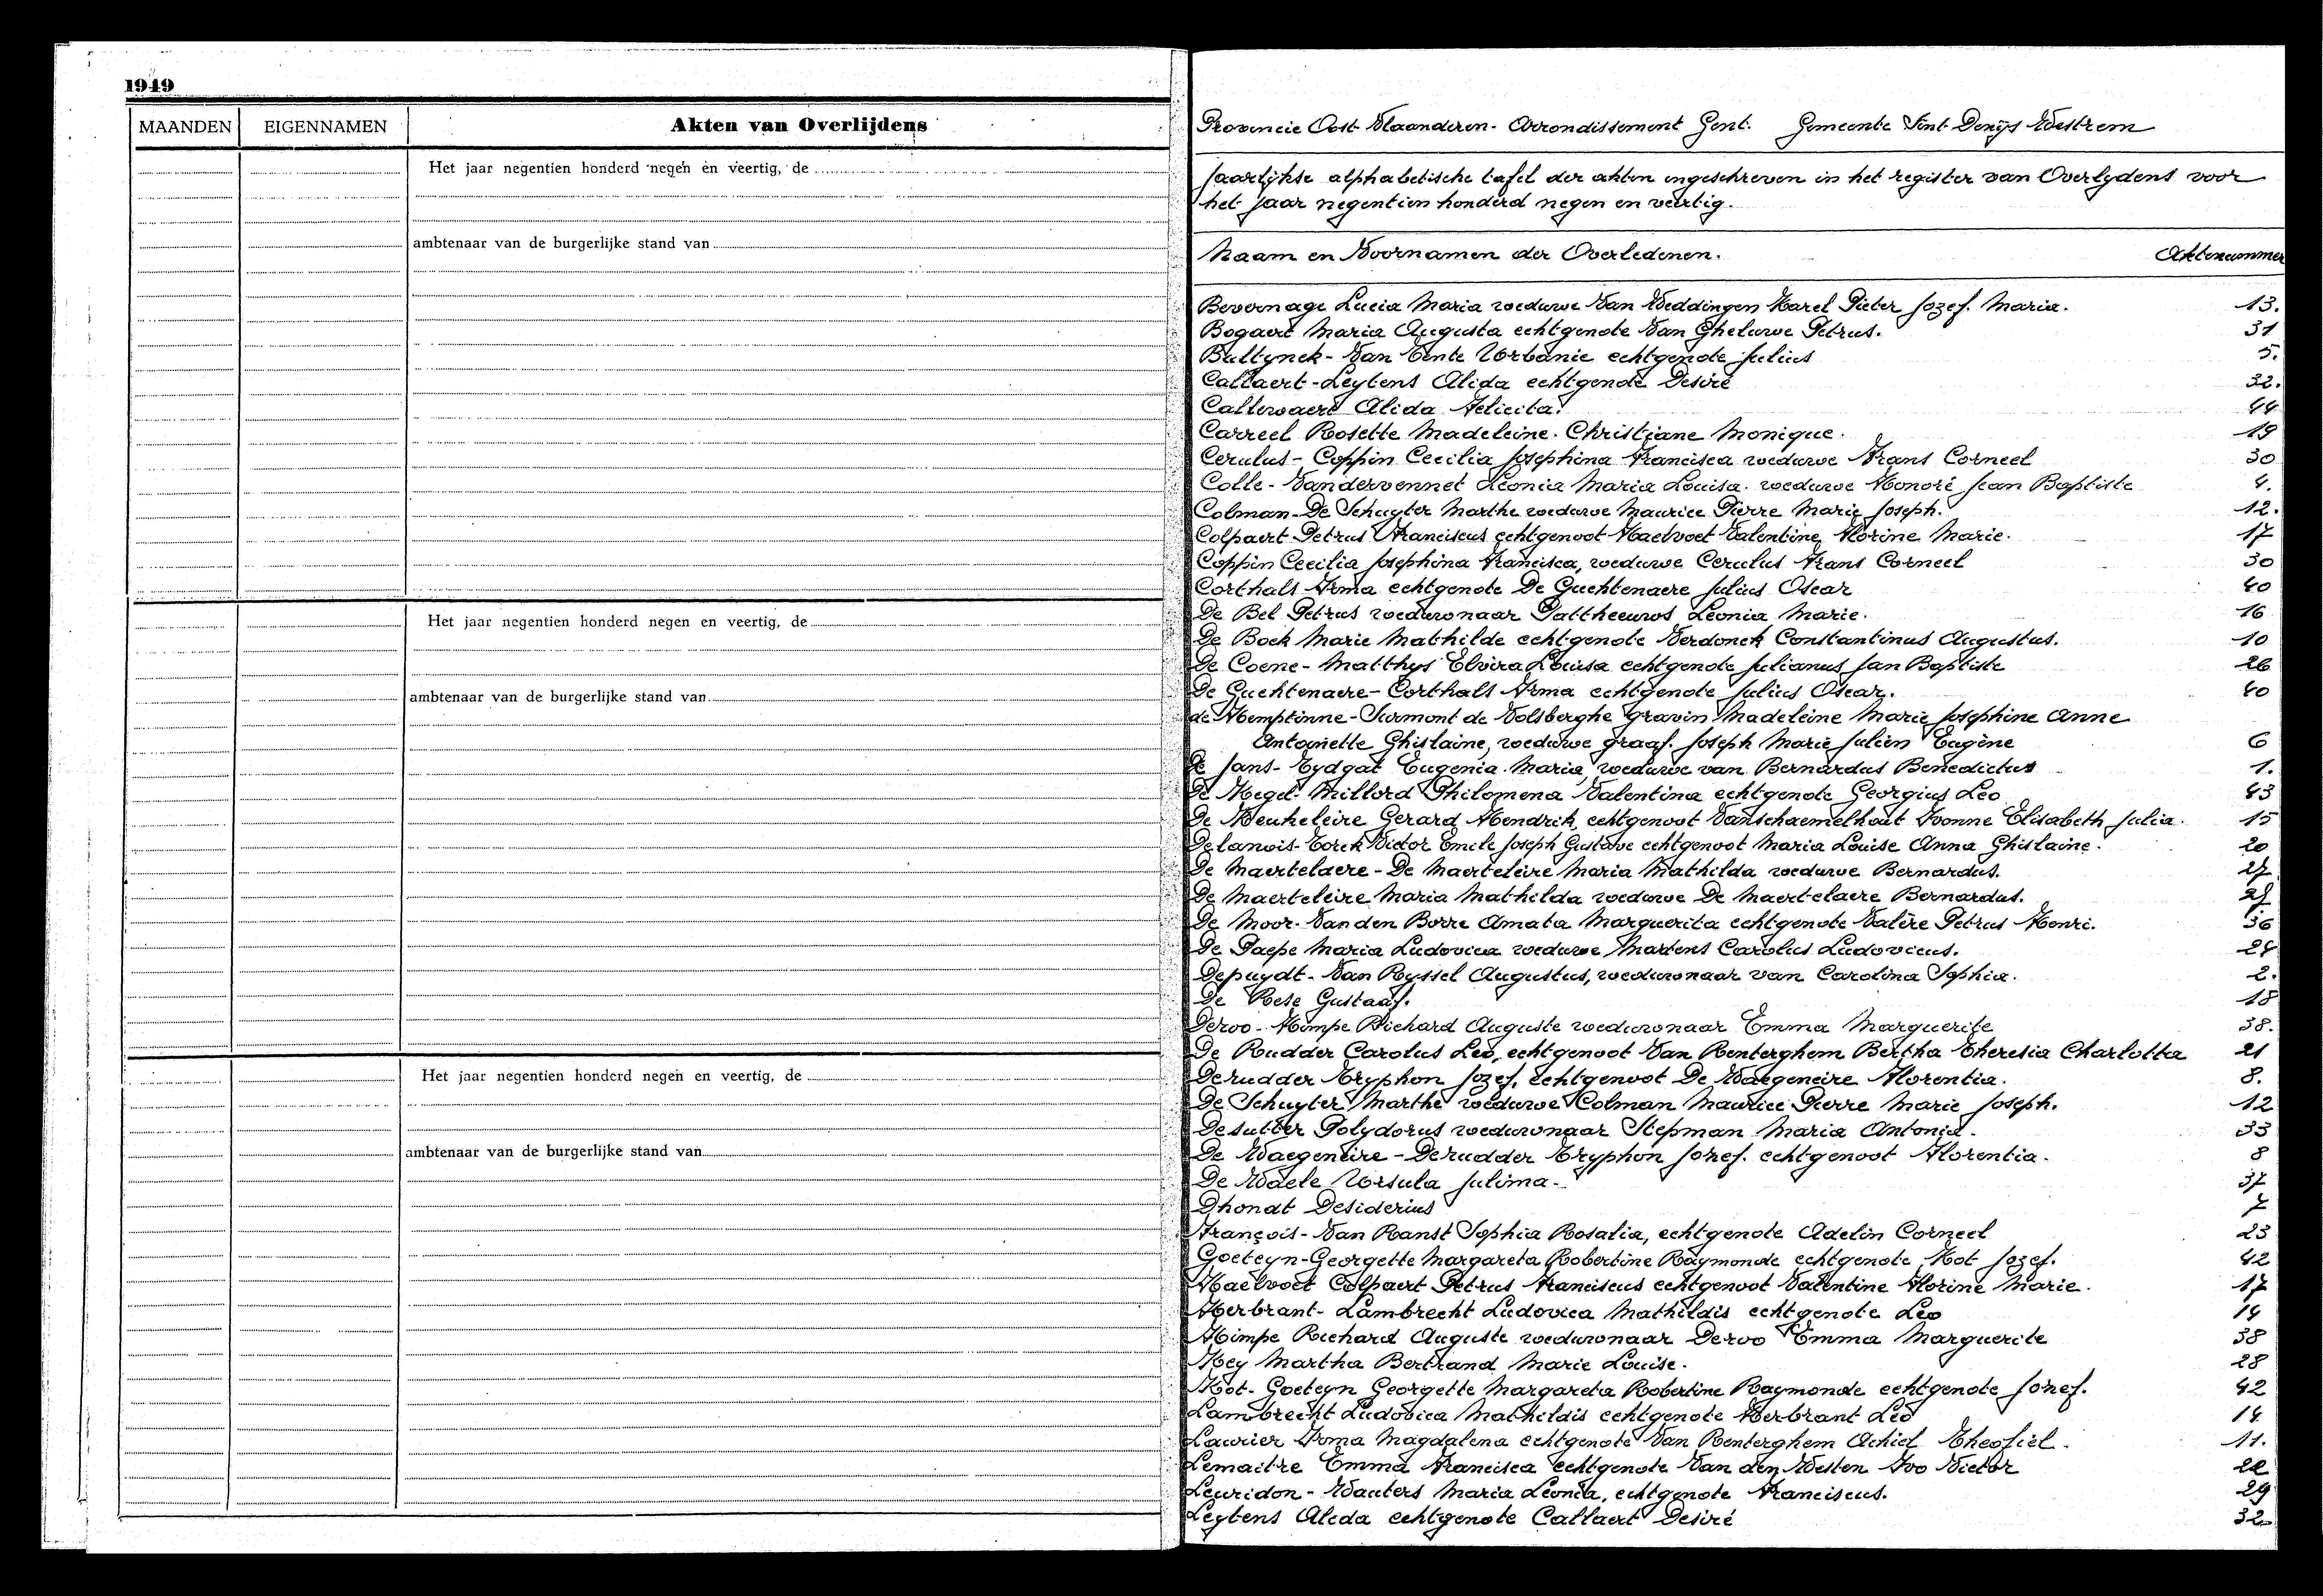 1949
MAANDEN EIGENNAMEN Akten van Overlijdens
Het jaar negentien honderd negen en veertig, de
ambtenaar van de burgerlijke stand van
Het jaar negentien honderd negen en veertig, de
ambtenaar van de burgerlijke stand van
Het jaar negentien honderd negen en veertig, de
ambtenaar van de burgerlijke stand van
Provincie Oost-Vlaanderen - Arrondissement Gent. Gemeente Sint-Denijs Westrem
Jaarlijkse alphabetische tafel der akten ingeschreven in het register van Overlydens voor
het jaar negentien honderd negen en veertig.
Naam en Voornamen der Overledenen. Aktenummer
Bevernage Lucia Maria weduwe Van Weddingen Karel Pieter Jozef. Maria. 13.
Bogaert Maria Augusta echtgenote Van Gheluwe Petrus. 31
Bultynck - Van Tente Urbanie echtgenote Julius 5.
Callaert - Leytens Alida echtgenote Desiré 32.
Callewaert Alida Felicita. 44
Carreel Rosette Madeleine. Christiane Monique. 19
Cerulus - Coppin Cecilia Josephina Francisca weduwe Frans Corneel 30
Colle - Vandervennet Leonia Maria Louisa. weduwe Honoré Jean Baptiste 4.
Colman - De Schuyter Marthe weduwe Maurice Pierre Marie Joseph. 12.
Colpaert Petrus Franciscus echtgenoot Haelvoet Valentine Florine Marie. 17
Coppin Cecilia Josephina Francisca, weduwe Cerulus Frans Corneel 30
Corthals Irma echtgenote De Guchtenaere Julius Oscar 40
De Bel Petrus weduwnaar Pattheeuws Leonia Marie. 16
De Bock Marie Mathilde echtgenote Verdonck Constantinus Augustus. 10
De Coene - Matthys Elvira Louisa echtgenote Julianus Jan Baptiste 26
De Guchtenaere - Corthals Irma echtgenote Julius Oscar. 40
de Hemptinne - Surmont de Volsberghe gravin Madeleine Marie Josephine Anne
Antoinette Ghislaine, weduwe graaf. Joseph Marie Julien Eugène 6
De Jans - Eydgat Eugenia Maria, weduwe van Bernardus Benedictus 1.
De Kegel - Millord Philomena Valentina echtgenote Georgius Leo 43
De Keukeleire Gerard Hendrik, echtgenoot Vanschaemelhout Ivonne Elisabeth Julia. 15
Delanois - Torck Victor Emile Joseph Gustave echtgenoot Maria Louise Anna Ghislaine. 20
De Maertelaere - De Maerteleire Maria Mathilda weduwe Bernardus. 27
De Maerteleire Maria Mathilda weduwe De Maertelaere Bernardus. 27
De Moor - Van den Borre Amata Marguerita echtgenote Valère Petrus Henri. 36
De Paepe Maria Ludovica weduwe Martens Carolus Ludovicus. 24
Depuydt - Van Ryssel Augustus, weduwnaar van Carolina Sophia. 2.
De Rese Gustaaf. 18
Deroo - Himpe Richard Auguste weduwnaar Emma Marguerite 38.
De Rudder Carolus Leo, echtgenoot Van Renterghem Bertha Theresia Charlotta 21
Derudder Tryphon Jozef. echtgenoot De Waegeneire Florentia. 8.
De Schuyter Marthe weduwe Colman Maurice Pierre Marie Joseph. 12
Desutter Polydorus weduwnaar Stepman Maria Antonia. 33
De Waegeneire - Derudder Tryphon Jozef. echtgenoot Florentia. 8
De Waele Ursula Julima. 37
Dhondt Desiderius 7
François - Van Ranst Sophia Rosalia, echtgenote Adelin Corneel 23
Goeteyn - Georgette Margareta Robertine Raymonde echtgenote Kot Jozef. 42
Haelvoet Colpaert Petrus Franciscus echtgenoot Valentine Florine Marie. 17
Herbrant - Lambrecht Ludovica Mathildis echtgenote Leo 14
Himpe Richard Auguste weduwnaar Deroo Emma Marguerite 38
Key Martha Bertrand Marie Louise. 28
Kot - Goeteyn Georgette Margareta Robertine Raymonde echtgenote Jozef. 42
Lambrecht Ludovica Mathildis echtgenote Herbrant Leo 14
Laurier Irma Magdalena echtgenote Van Renterghem Achiel Theofiel. 11.
Lemaitre Emma Francisca echtgenote Van den Westen Ivo Victor 22
Leuridon - Wauters Maria Leonia, echtgenote Franciscus. 29
Leytens Alida echtgenote Callaert Desiré 32